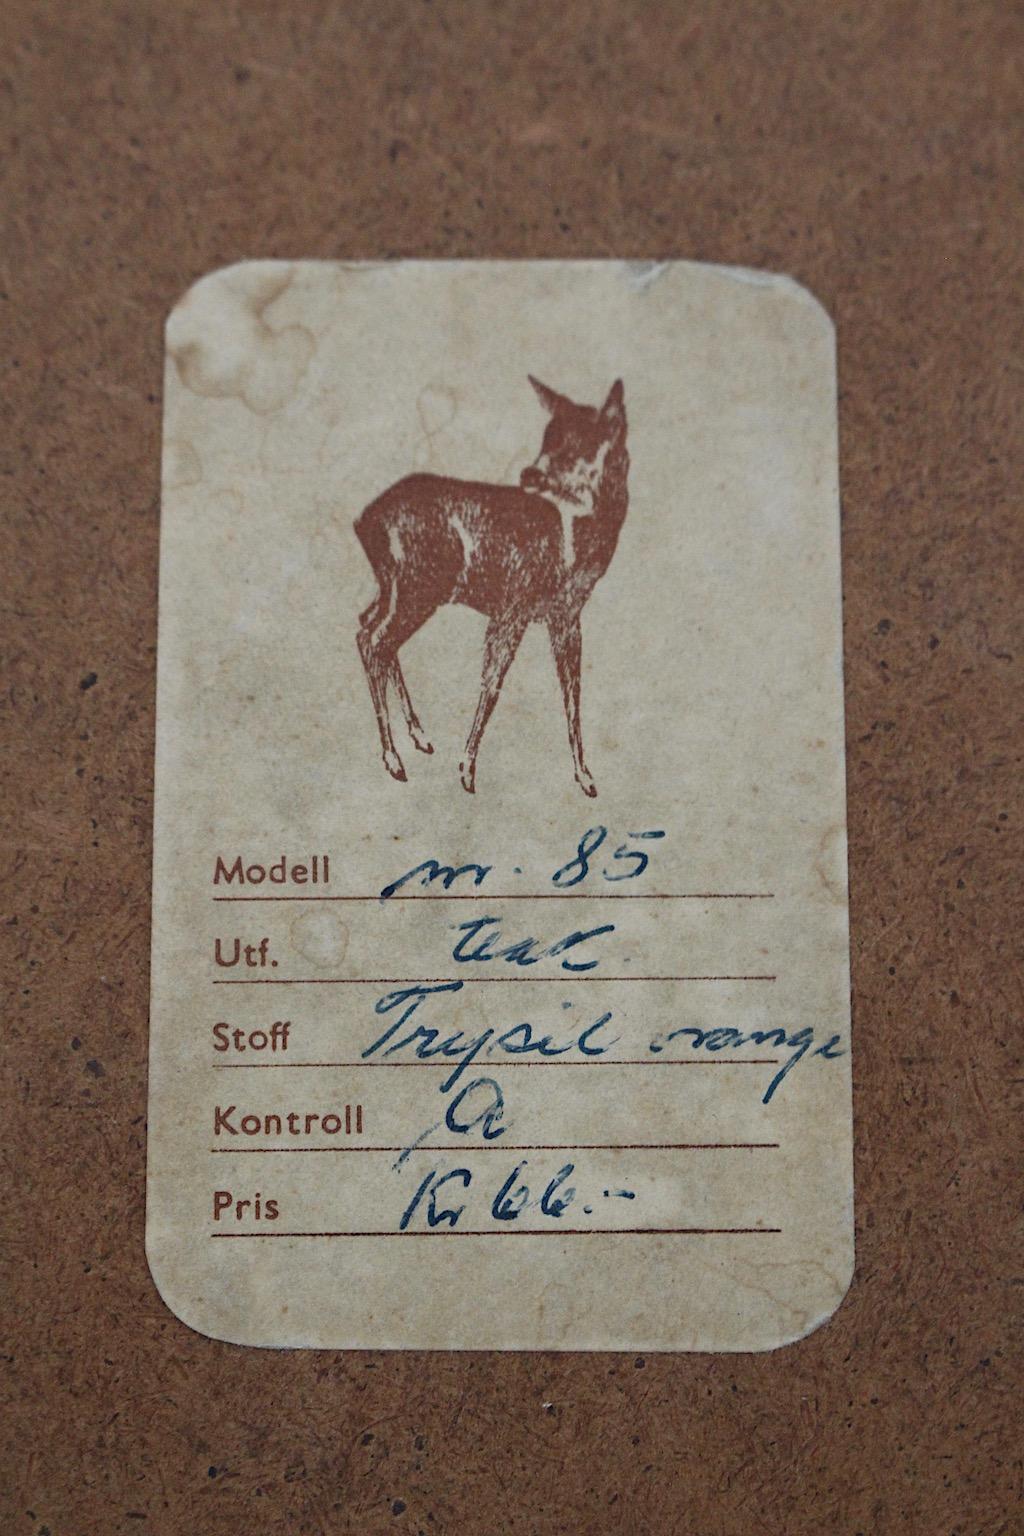 Modell nr. 85
Utf. teak
Stoff Trysil orange
Kontroll a
Pris Kr 66.-